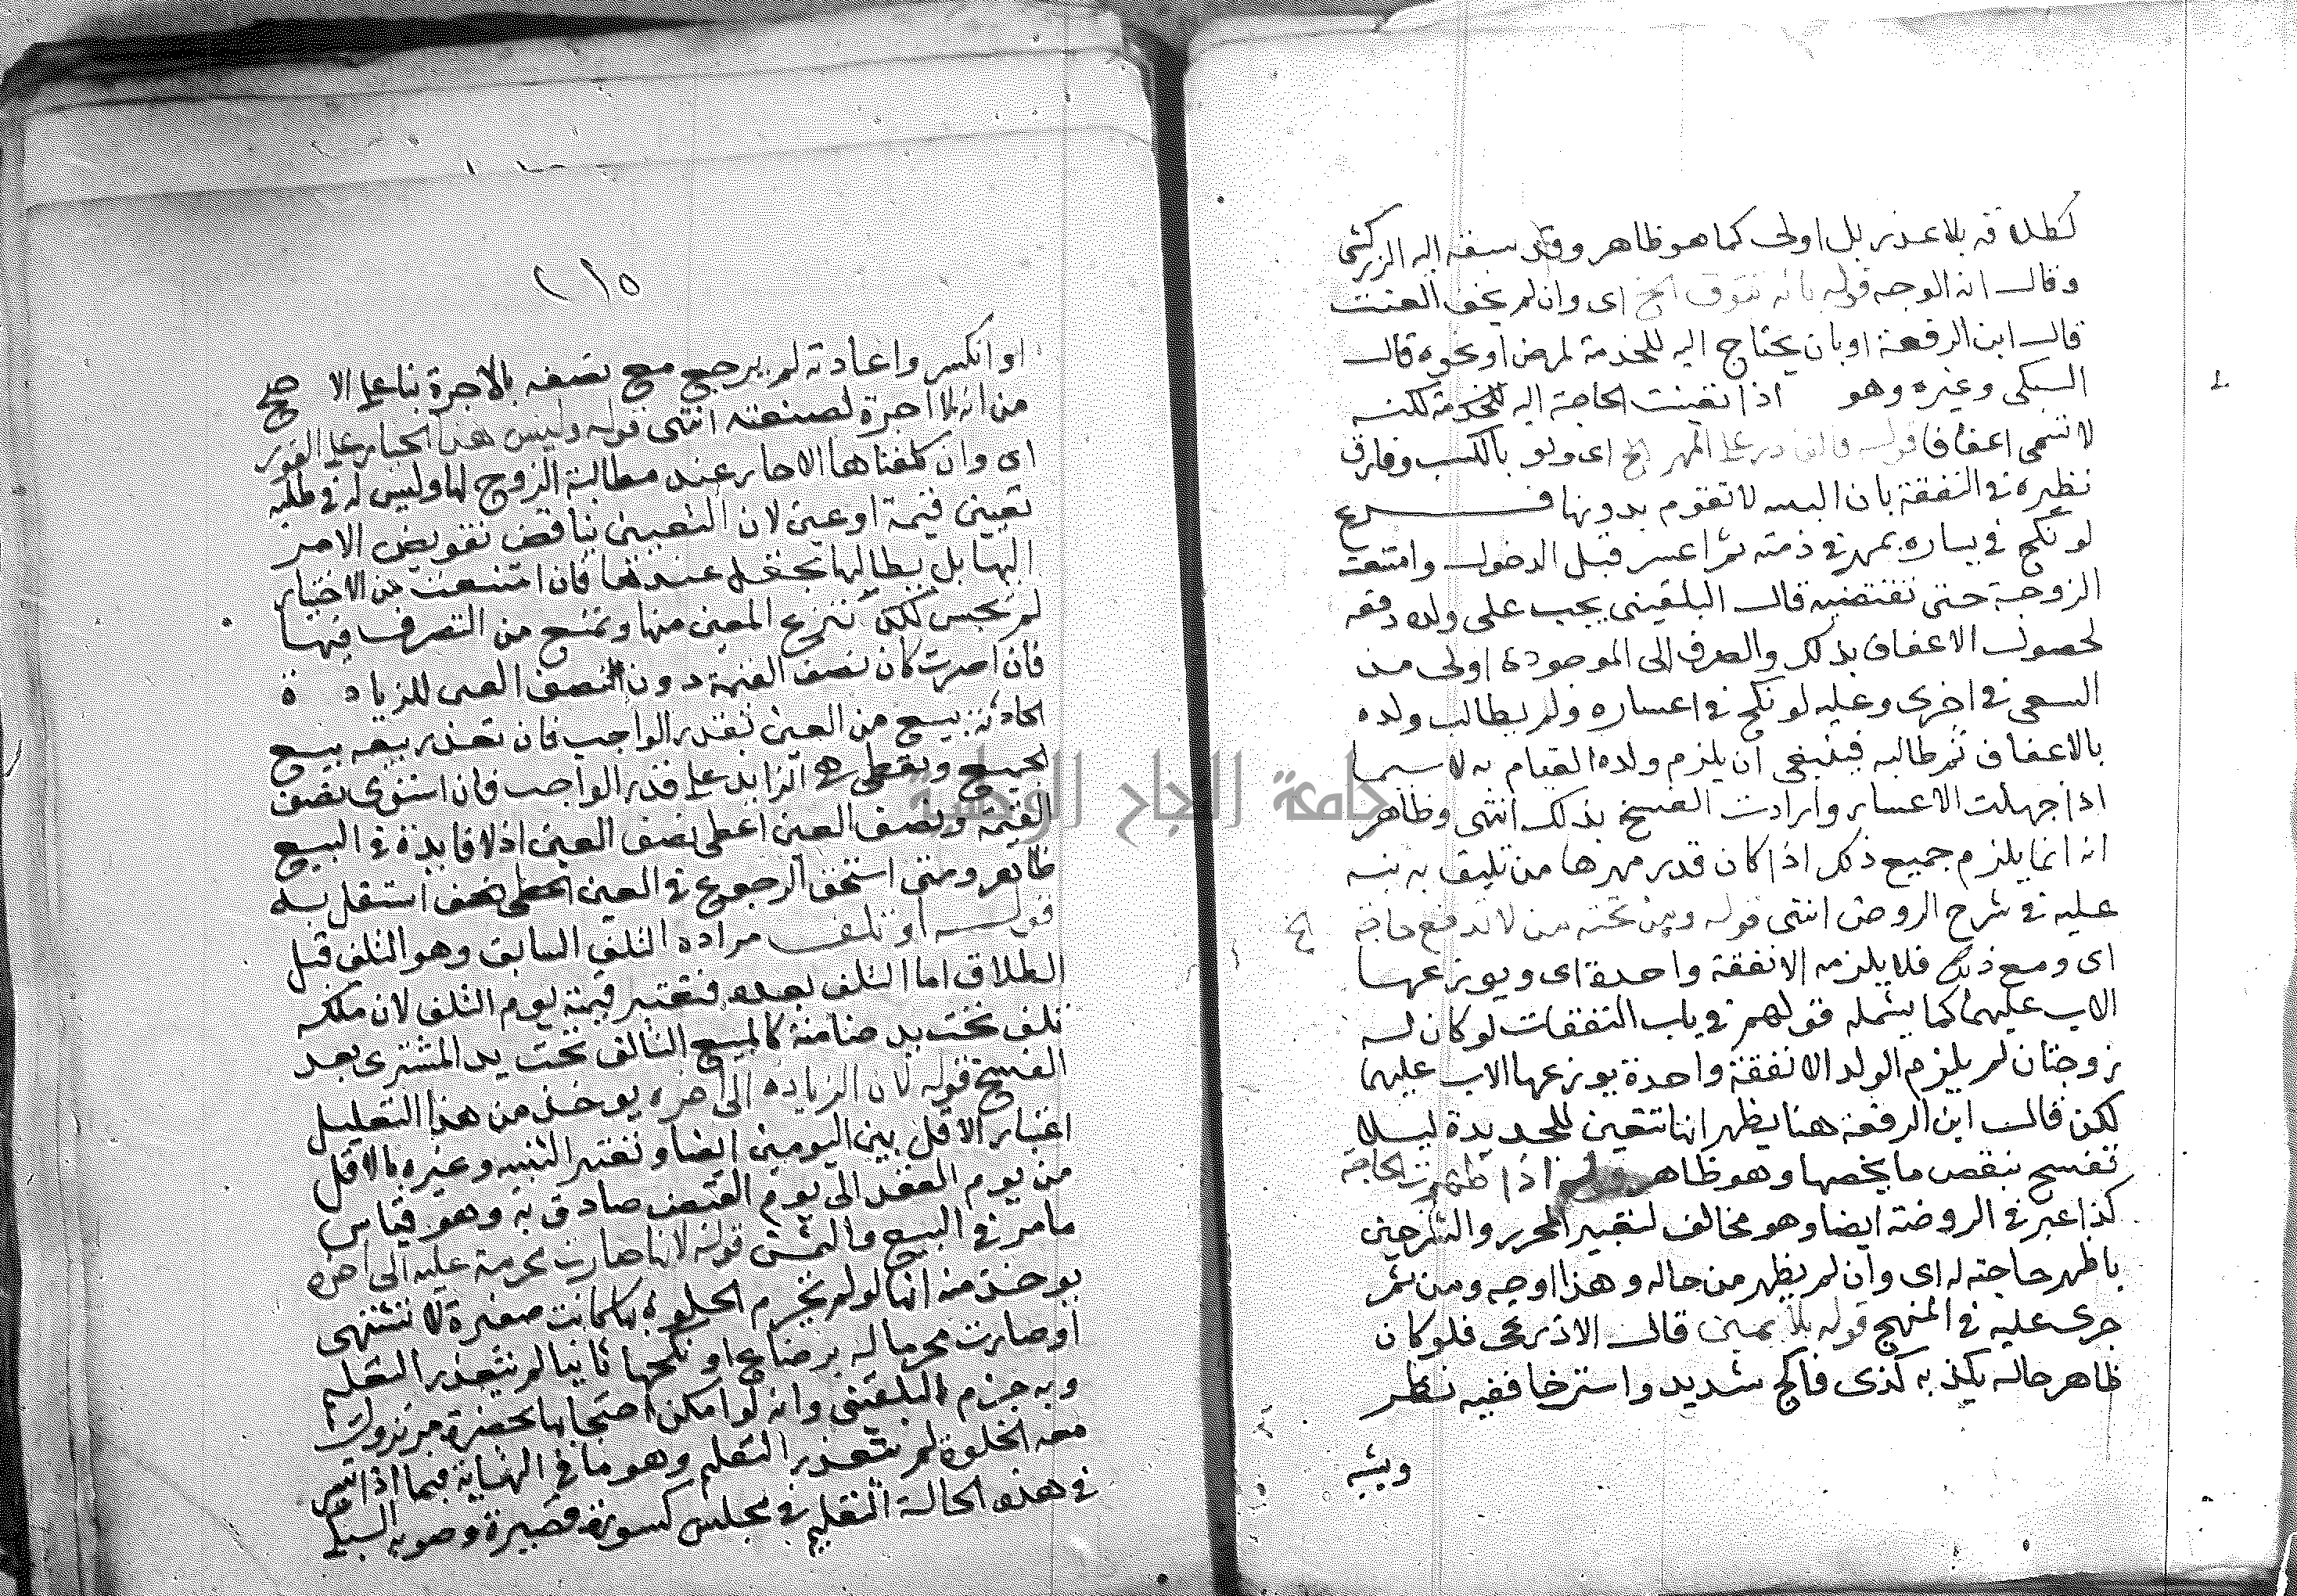 كطلاقه بلا عذر بل اولى كما هو ظاهر وقد سبقه اليه الزركشي
وقال انه الوجه قوله بانه تتوق الخ اى وان لم يخف العنت
قال ابن الرفعة او بان يحتاج اليه للخدمة لمرض او نحوه قال
السبكى وغيره وهو اذا تعينت الحاجة اليه للخدمة لكنه
لا تسمى اعفافا قوله فالقادر على المهر الخ اى ولو بالكسب وفارق
نظيره فى النفقة بان البنية لا تقوم بدونها فرع
لو نكح في يساره بمهر في ذمته ثم اعسر قبل الدخول وامتنعت
الزوجة حتى تقتضيه قال البلقينى يجب على ولده دفعه
لحصول الاعفاف بذلك والصرف الى الموجودة اولى من
السعى في اخرى وعليه لو نكح في اعساره ولم يطالب ولده
بالاعفاف ثم طالبه فينبغى ان يلزم ولده القيام به لا سيما
اذا جهلت الاعسار وارادت الفسخ بذلك انتهى وظاهر
انه انما يلزم جميع ذلك اذا كان قدر مهرها من تليق به نبه
عليه في شرح الروض انتهى قوله ومن تحته من لا تدفع حاجة الخ
اى ومع ذلك فلا يلزمه الا نفقة واحدة اى ويوزعها
الاب عليهما كما يشمله قولهم في باب النفقات لو كان له
زوجتان لم يلزم الولد الا نفقة واحدة يوزعها الاب عليهما
لكن قال ابن الرفعة هنا يظهر انها تتعين للجديدة ليلا
تفسخ بنقص ما يخصها وهو ظاهر قوله اذا ظهرت الحاجة
كذا عبر في الروضة ايضا وهو مخالف لتعبير المحرر والشرحين
باظهر حاجته له اى وان لم يظهر من حاله وهذا اوجه ومن ثم
جرى عليه في المنهج قوله بلا يمين قال الاذرعى فلو كان
ظاهر حاله يكذبه كذى فالج شديد واسترخا ففيه نظر
ويشبه
٢١٥
او انكسر واعادته لم يرجع مع نصفه بالاجرة بنا على الاصح
من انه لا اجرة لصنعته انتهى قوله وليس هذا الخيار على الفور
اى وان كلفناها الاختيار عند مطالبة الزوج لها وليس له في طلبه
تعيين قيمة او عين لان التعيين يناقض تفويض الامر
اليها بل يطالبها بحقه عندها فان امتنعت من الاختيار
لم تحبس لكن تنزع العين منها وتمنع من التصرف فيها
فان اصرت كان نصف القيمة دون نصف العين للزيادة
الحادثة بيع من العين بقدر الواجب فان تعذر بيعه بيع
الجميع وتعطى هى الزايد على قدر الواجب فان استوى نصف
القيمة ونصف العين اعطى نصف العين اذ لا فايدة في البيع
ظاهر ومتى استحق الرجوع في العين استقل به
قوله او تلف مراده التلف السابق وهو التلف قبل
الطلاق اما التلف بعده فتعتبر قيمة يوم التلف لان ملكه
تلف تحت يد ضامنة كالمبيع التالف تحت يد المشترى بعد
الفسخ قوله لان الزياده الى اخره يوخذ من هذا التعليل
اعتبار الاقل بين اليومين ايضا وتعبير التنبيه وغيره بالاقل
من يوم العقد الى يوم القبض صادق به وهو قياس
ما مر في البيع والثمن قوله لانها صارت محرمة عليه الى اخره
يوخذ منه انها لو لم تحرم الخلوة بها كانت صغيرة لا تشتهى
او صارت محرما له برضاع او نكحها ثانيا لم يتعذر التعليم
وبه جزم البلقينى وانه لو امكن احتجابها بحضرة من تزول
معه الخلوة لم يتعذر التعليم وهو ما في النهاية فيما اذا تيسر
في هذه الحالة التعليم في مجلس كسورة قصيرة وصوبه السبكى